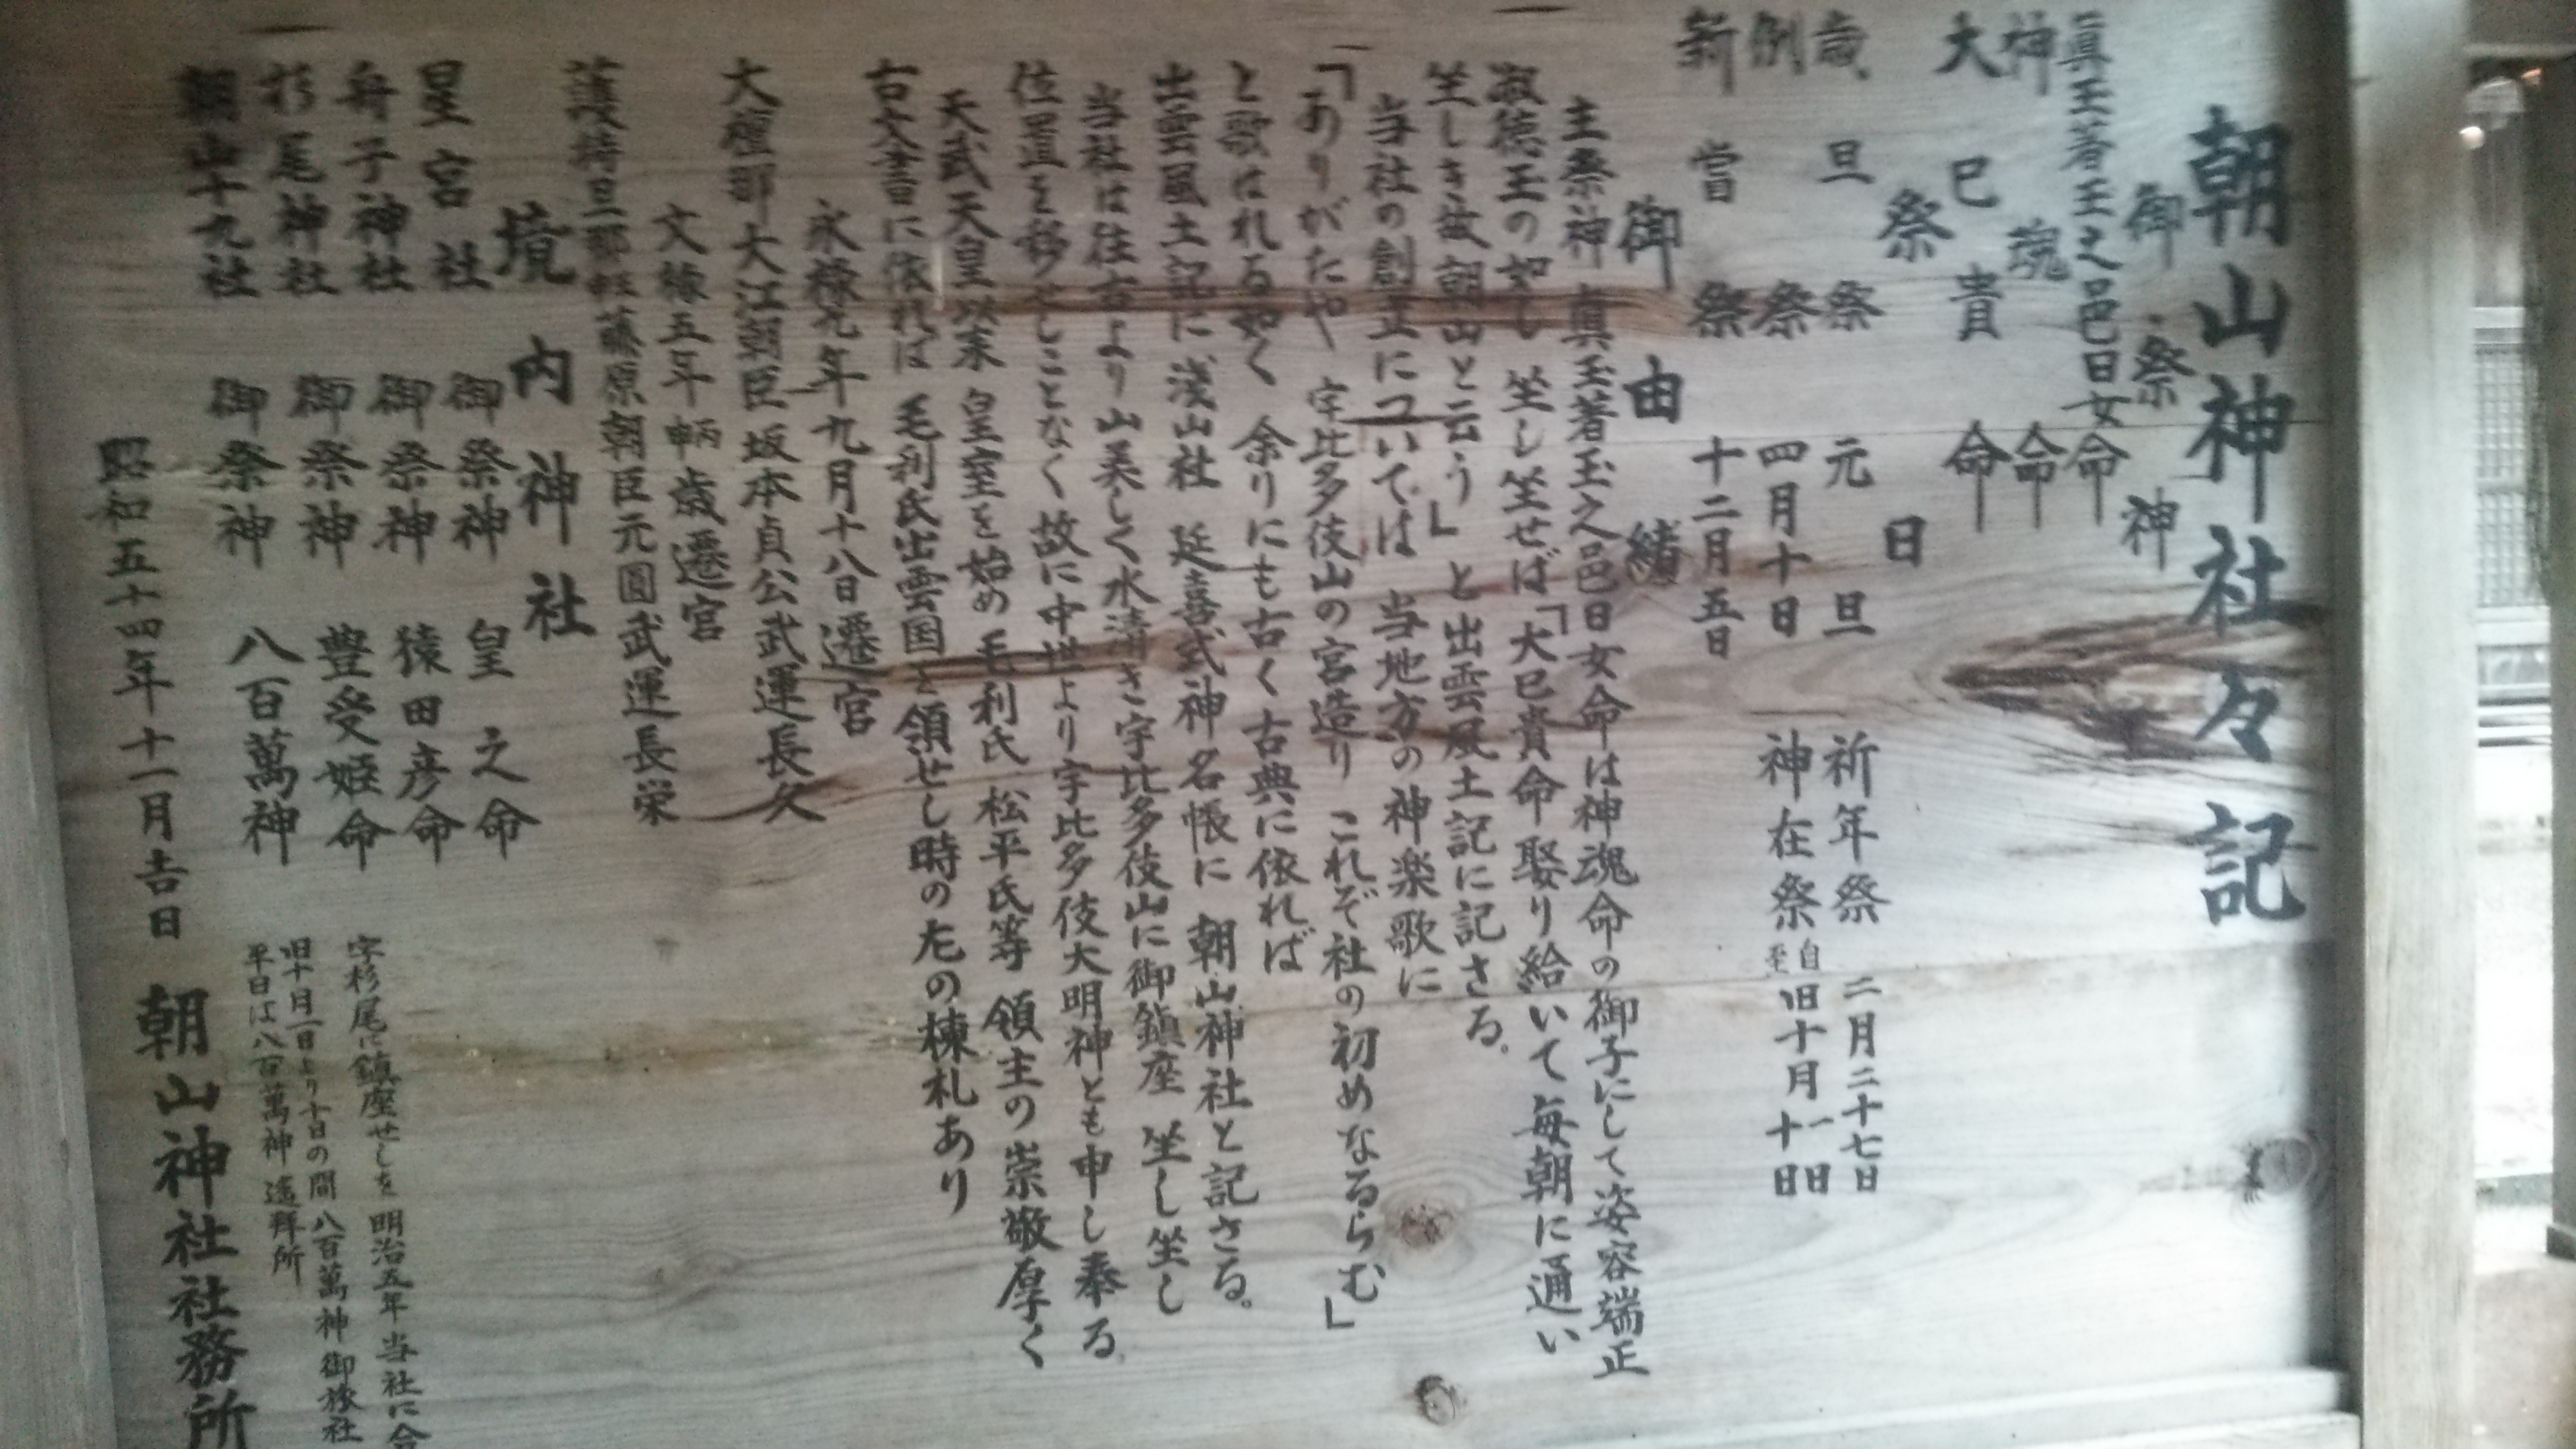 朝山神社々記
御祭神
眞玉著玉之邑日女命
神魂命
大巳貴命
祭日
歳旦祭 元旦 祈年祭 二月二十七日
例祭 四月十日 神在祭 自旧十月一日 至十日
新嘗祭 十二月五日
御由緒
主祭神 眞玉著玉之邑日女命は神魂命の御子にして姿容端正
淑徳玉の如し 坐し坐せば「大巳貴命娶り給いて毎朝に通い
坐しき故朝山と云う」と出雲風土記に記さる。
当社の創立については 当地方の神楽歌に
「ありがたや 宇比多伎山の宮造り これぞ社の初めなるらむ」
と歌はれる如く 余りにも古く古典に依れば
出雲風土記に浅山社 延喜式神名帳に 朝山神社と記さる。
当社は往古より山美しく水清き宇比多伎山に御鎮座 坐し坐し
位置を移せしことなく故に中世より宇比多伎大明神とも申し奉る
天武天皇以来 皇室を始め 毛利氏 松平氏等 領主の崇敬厚く
古文書に依れば 毛利氏出雲国を領せし時の左の棟札あり
永禄元年九月十八日遷宮
大檀那大江朝臣坂本貞公武運長久
文禄五年丙申歳遷宮
護持旦那 藤原朝臣元圓武運長栄
境内神社
星宮社 御祭神 皇之命
舟子神社 御祭神 猿田彦命
杉尾神社 御祭神 豊受姫命 字杉尾に鎮座せしを 明治五年 当社に合
朝山十九社 御祭神 八百萬神 旧十月一日より十日の間 八百萬神 御旅社
平日は八百萬神 遙拜所
昭和五十四年十一月吉日 朝山神社社務所